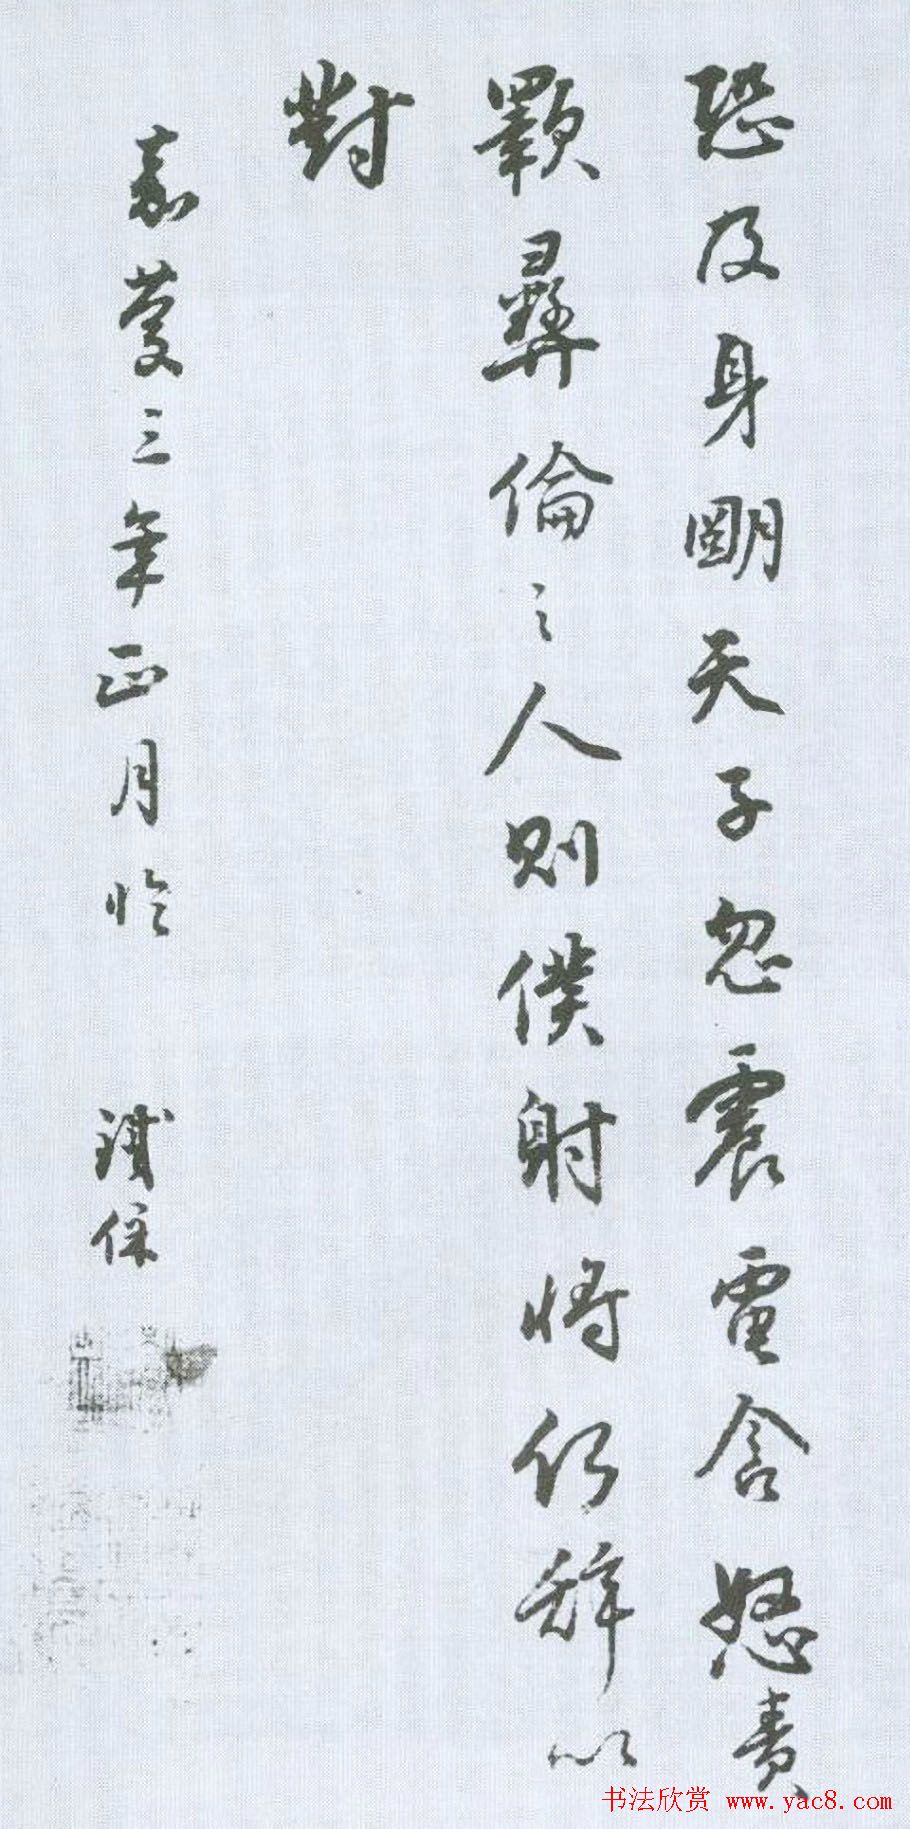 恐及身明天子忽震電含怒責
斁彝倫之人則僕射將何辭以
對
嘉慶三年正月臨 鐵保
书法欣赏 www.yac8.com